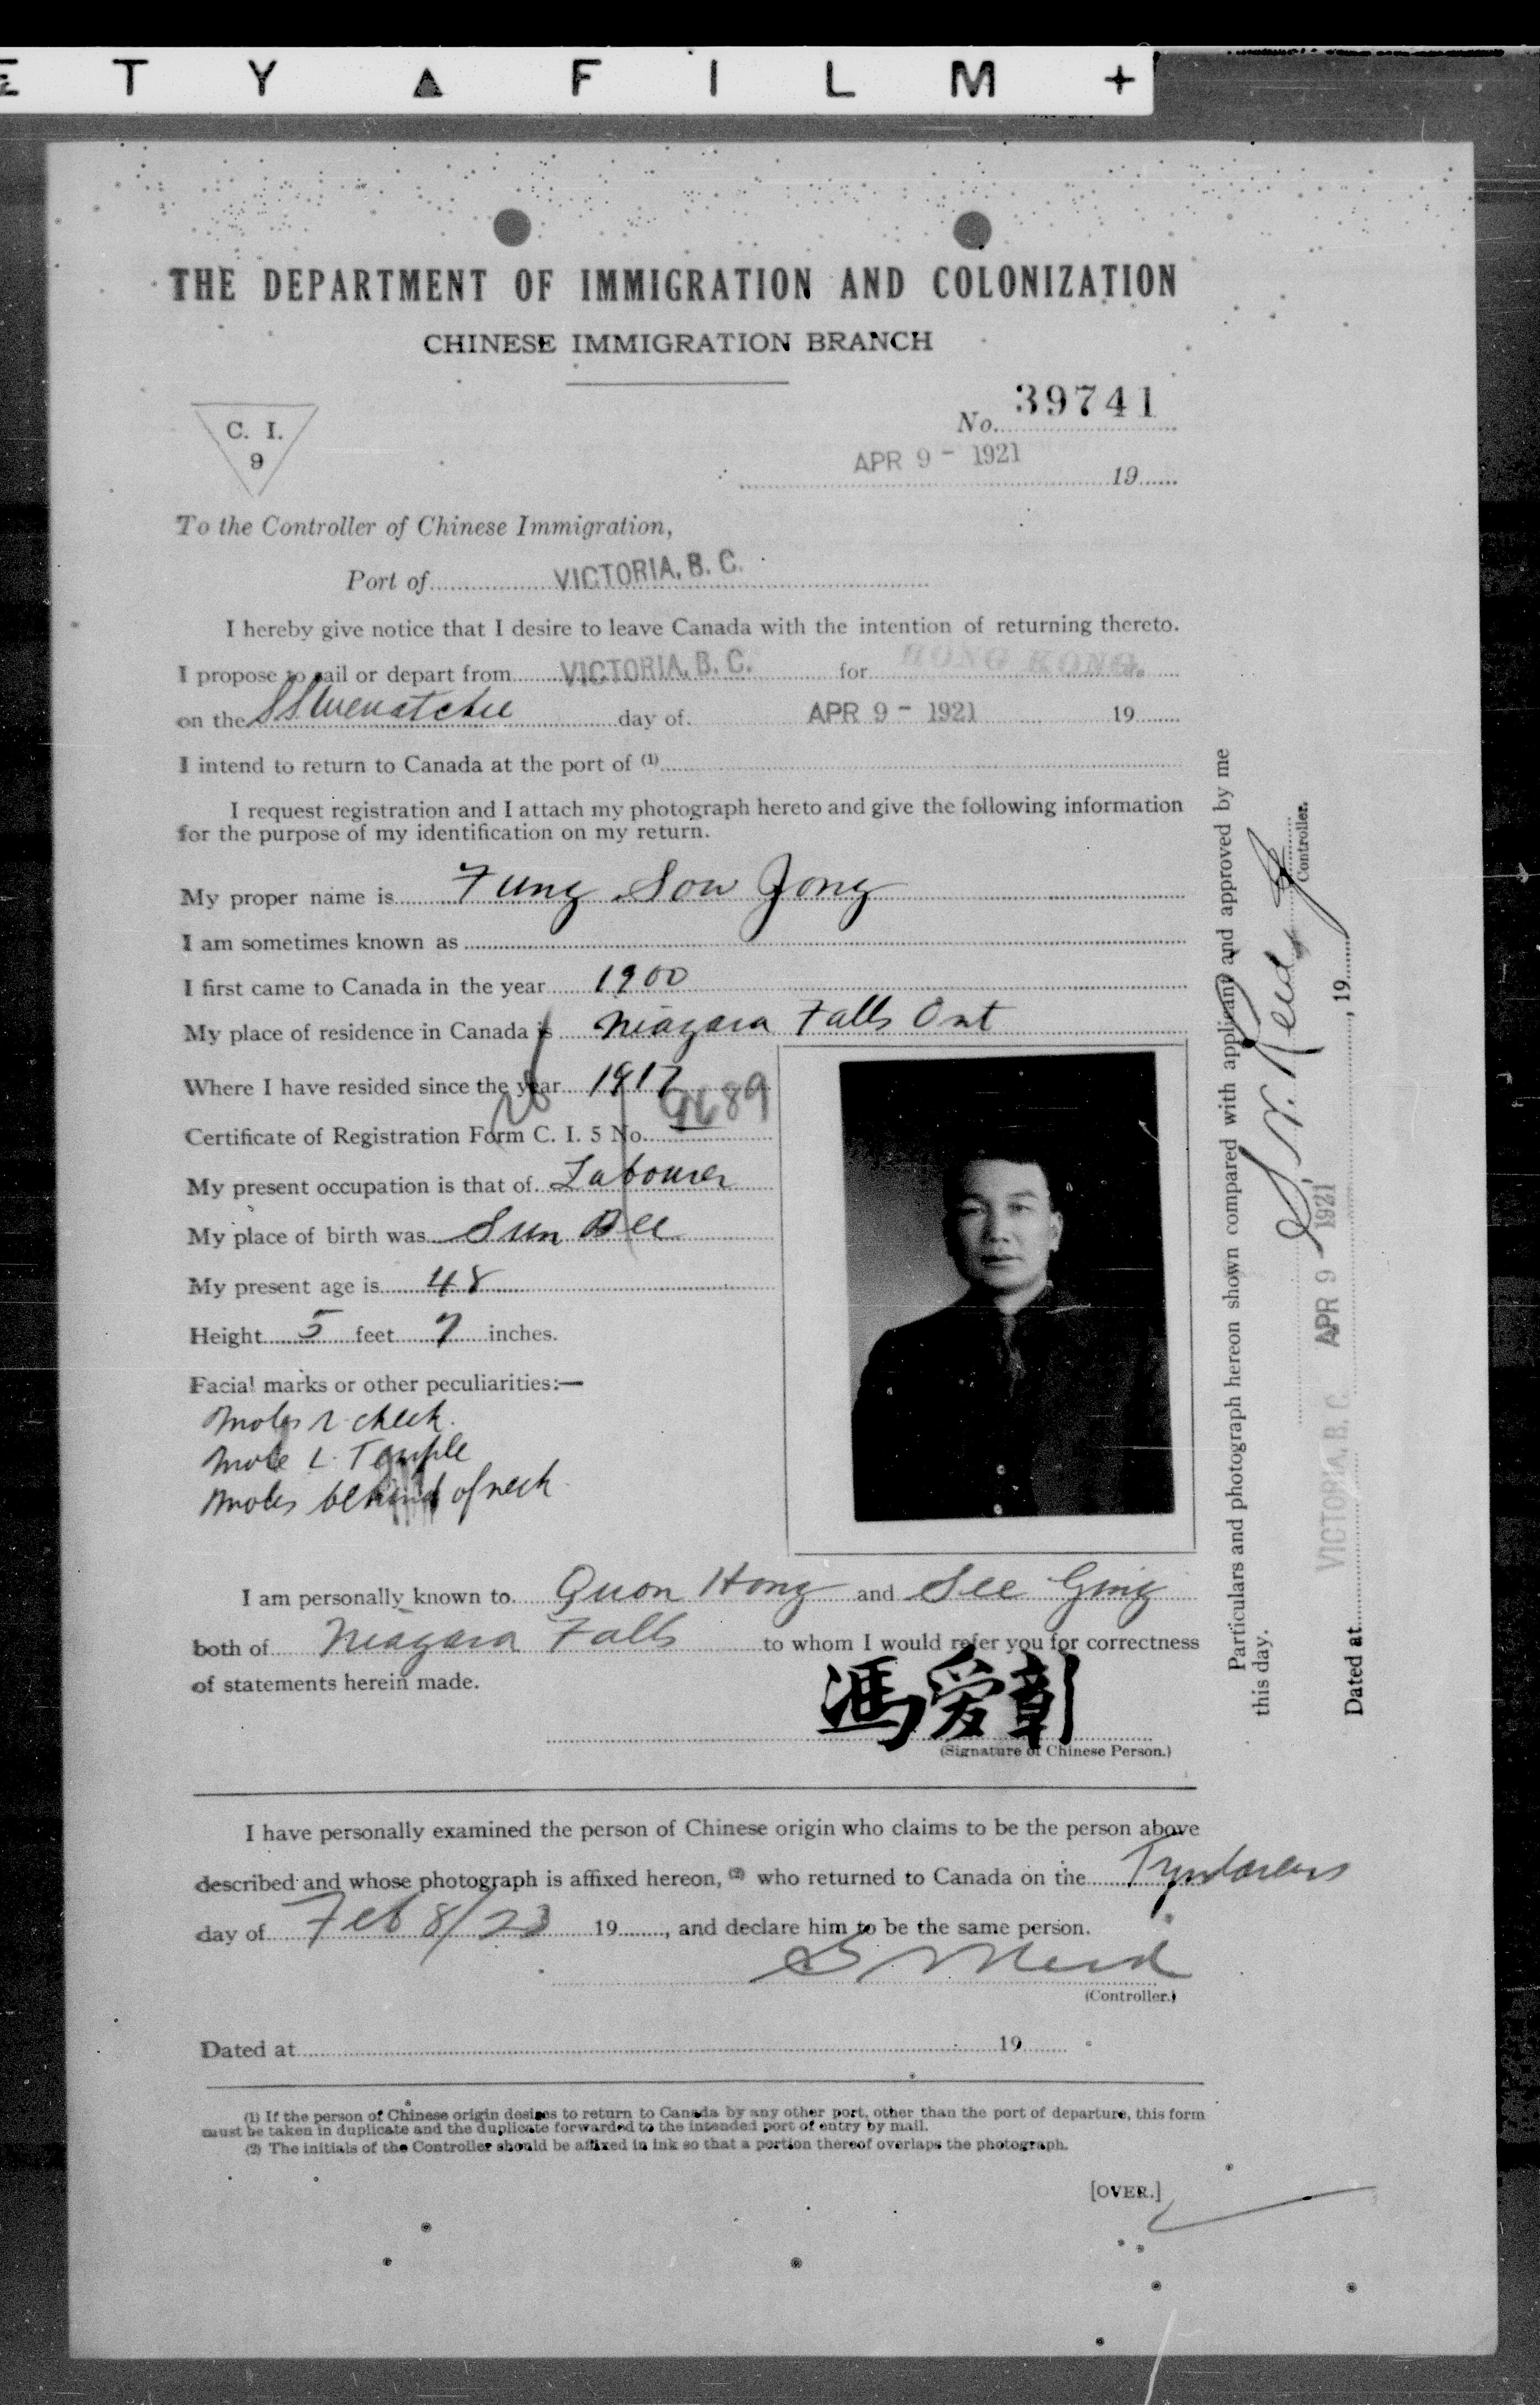 E T Y ▲ F I L M +
THE DEPARTMENT OF IMMIGRATION AND COLONIZATION
CHINESE IMMIGRATION BRANCH
C. I.
9
No. 39741
APR 9 - 1921 19
To the Controller of Chinese Immigration,
Port of VICTORIA, B. C.
I hereby give notice that I desire to leave Canada with the intention of returning thereto.
I propose to sail or depart from VICTORIA, B. C. for HONG KONG.
on the SS Wenatchee day of APR 9 - 1921 19
I intend to return to Canada at the port of (1)
I request registration and I attach my photograph hereto and give the following information
for the purpose of my identification on my return.
My proper name is Fung Sow Jong
I am sometimes known as
I first came to Canada in the year 1900
My place of residence in Canada is Niagara Falls Ont
Where I have resided since the year 1917
Certificate of Registration Form C. I. 5 No. 9689
My present occupation is that of Labourer
My place of birth was Sun
My present age is 48
Height 5 feet 7 inches.
Facial marks or other peculiarities:—
Moles r. cheek.
Mole L. Temple
Moles behind of neck
I am personally known to Quon Hong and See Ging
both of Niagara Falls to whom I would refer you for correctness
of statements herein made.
馮爱彰
(Signature of Chinese Person.)
I have personally examined the person of Chinese origin who claims to be the person above
described and whose photograph is affixed hereon, (2) who returned to Canada on the Tyndareus
day of Feb 8/23 19, and declare him to be the same person.
(Controller.)
Dated at 19
(1) If the person of Chinese origin desires to return to Canada by any other port, other than the port of departure, this form
must be taken in duplicate and the duplicate forwarded to the intended port of entry by mail.
(2) The initials of the Controller should be affixed in ink so that a portion thereof overlaps the photograph.
[OVER.]
Particulars and photograph hereon shown compared with applicant and approved by me
this day.
Controller.
Dated at VICTORIA, B. C. APR 9 1921, 19